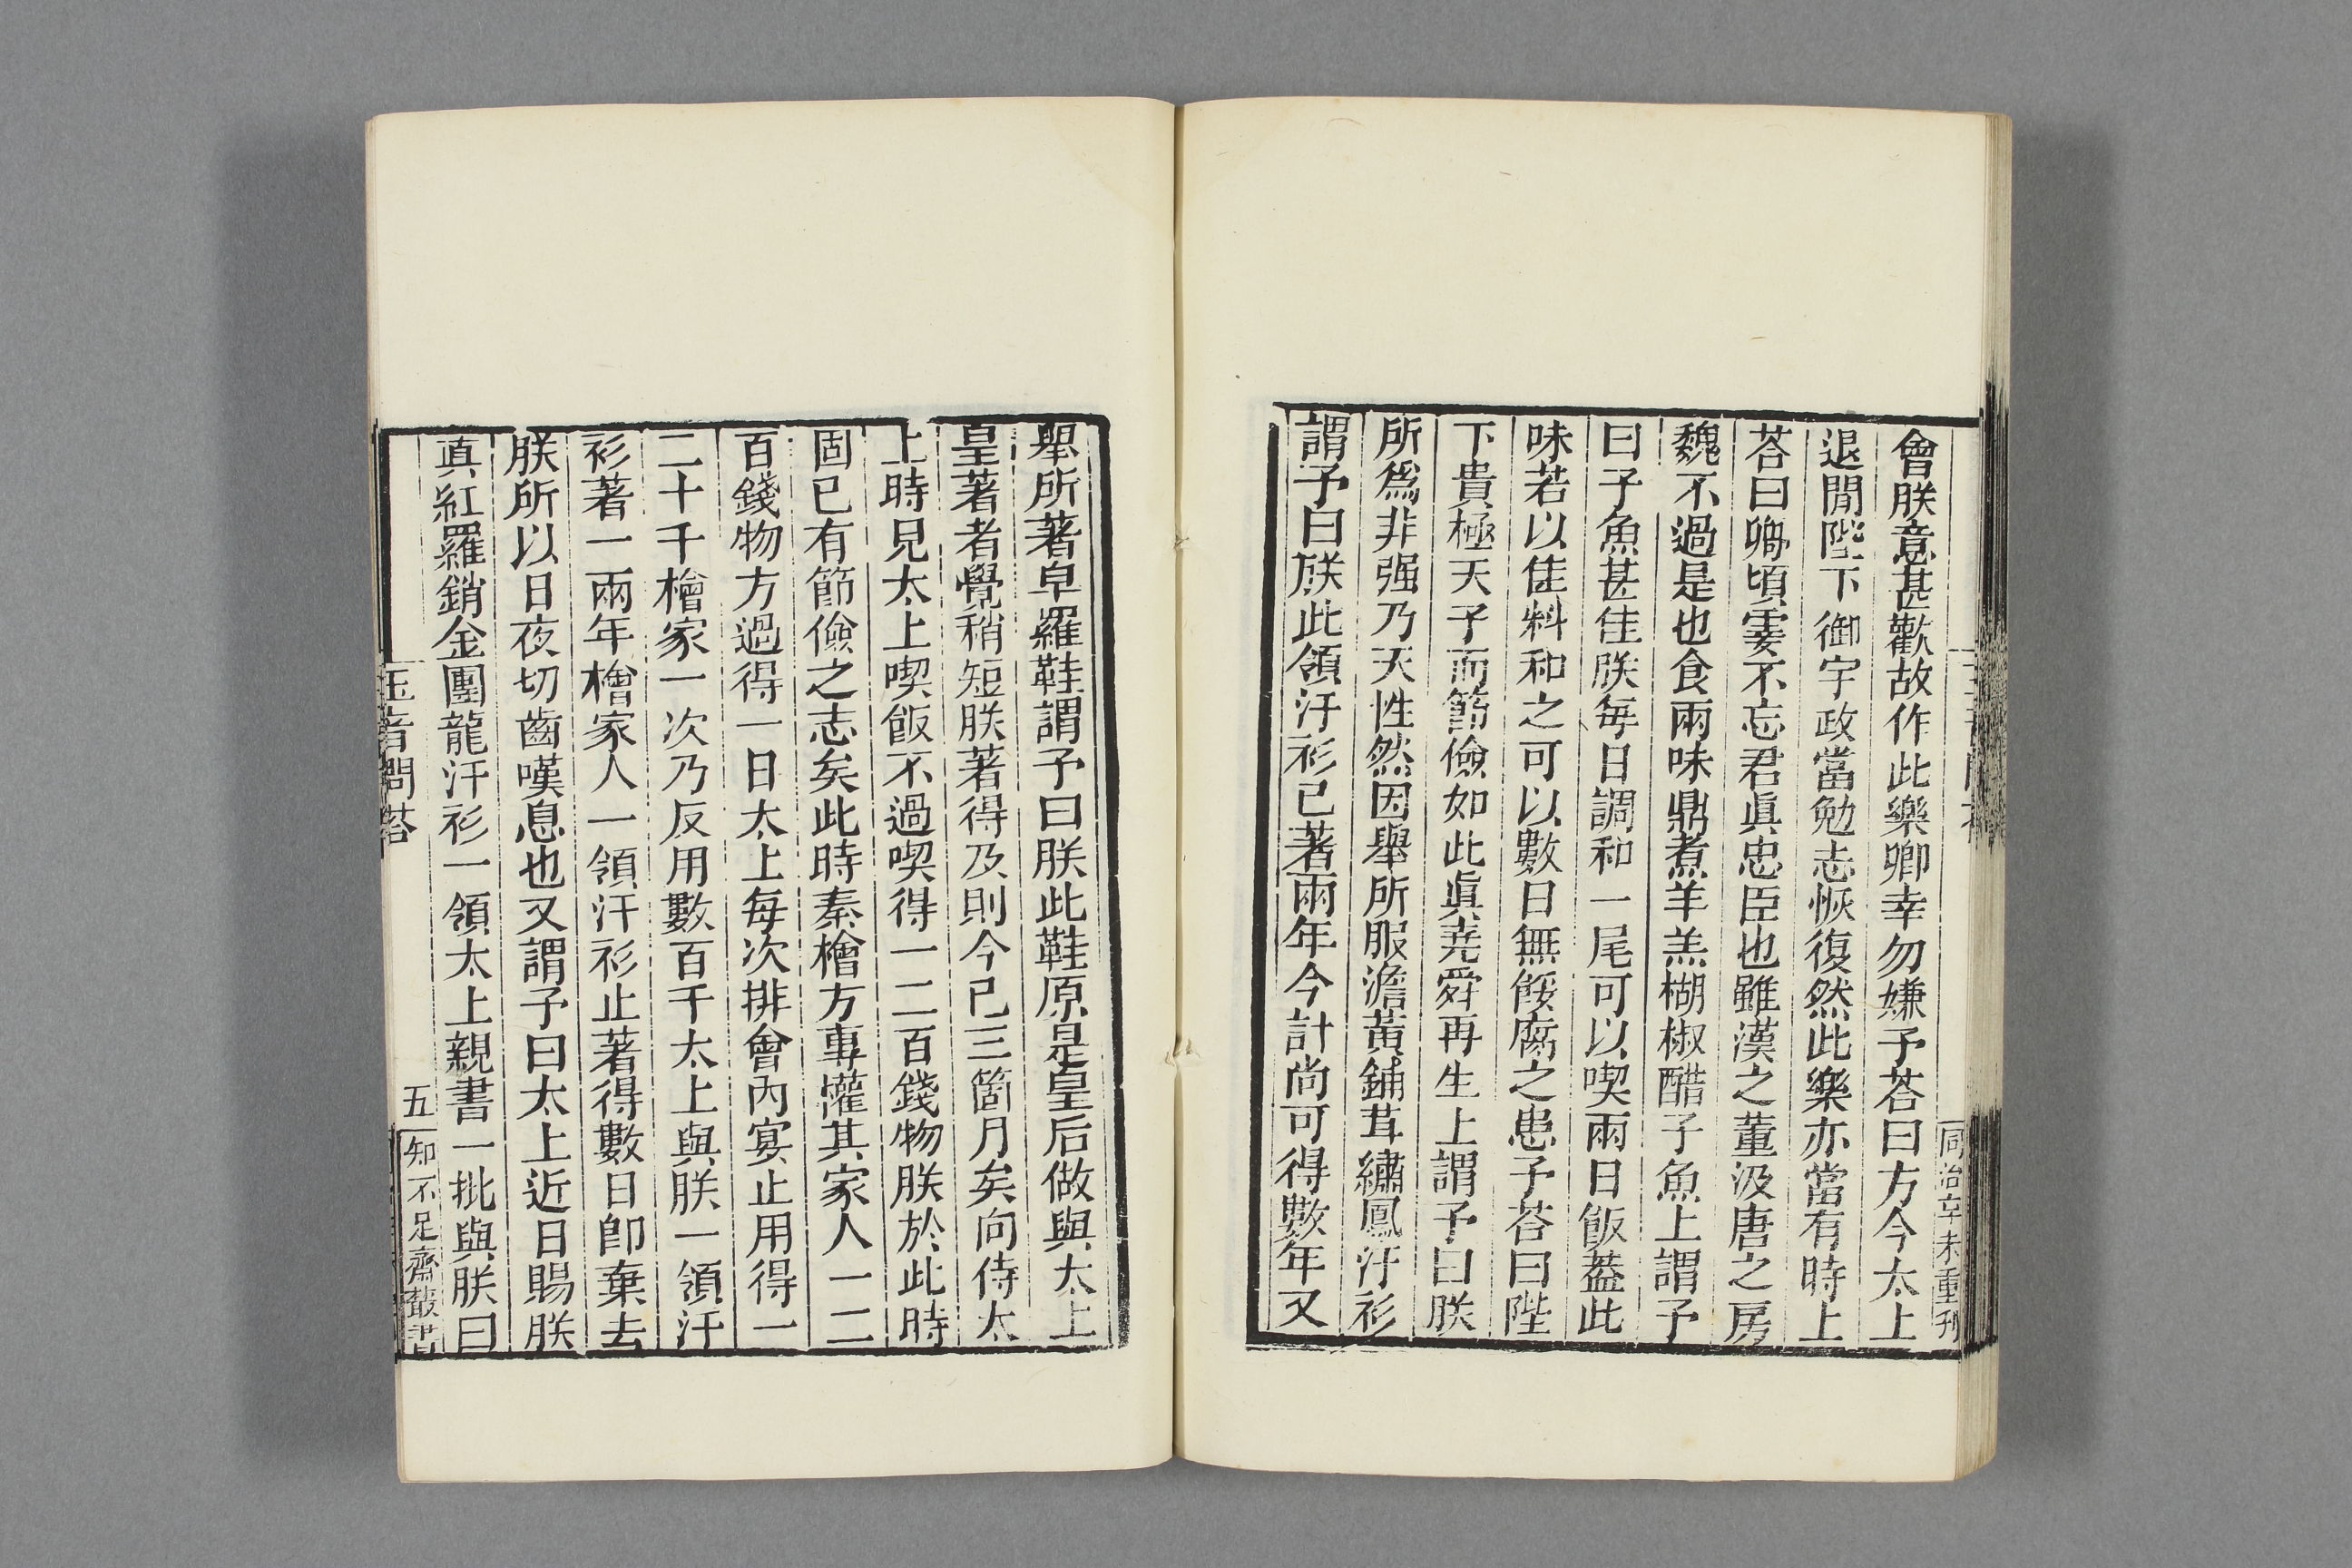 同治辛未重刋
會朕意甚歡故作此樂卿幸勿嫌予荅曰方今太上
退閒陛下御宇政當勉志恢復然此樂亦當有時上
荅曰卿頃霎不忘君眞忠臣也雖漢之董汲唐之房
魏不過是也食兩味鼎煮羊羔槲椒醋子魚上謂予
曰子魚甚佳朕每日調和一尾可以喫兩日飯葢此
味若以佳料和之可以數日無餒腐之患予荅曰陛
下貴極天子而節儉如此眞堯舜再生上謂予曰朕
所爲非强乃天性然因舉所服澹黃鋪茸繡鳳汗衫
謂予曰朕此領汗衫已著兩年今計尚可得數年又
舉所著皁羅鞋謂予曰朕此鞋原是皇后做與太上
皇著者覺稍短朕著得及則今已三箇月矣向侍太
上時見太上喫飯不過喫得一二百錢物朕於此時
固已有節儉之志矣此時秦檜方專懽其家人一二
百錢物方過得一日太上每次排會內宴止用得一
二十千檜家一次乃反用數百千太上與朕一領汗
衫著一兩年檜家人一領汗衫止著得數日卽棄去
朕所以日夜切齒嘆息也又謂予曰太上近日賜朕
眞紅羅銷金團龍汗衫一領太上親書一批與朕曰
玉音問荅
五
知不足齋叢書